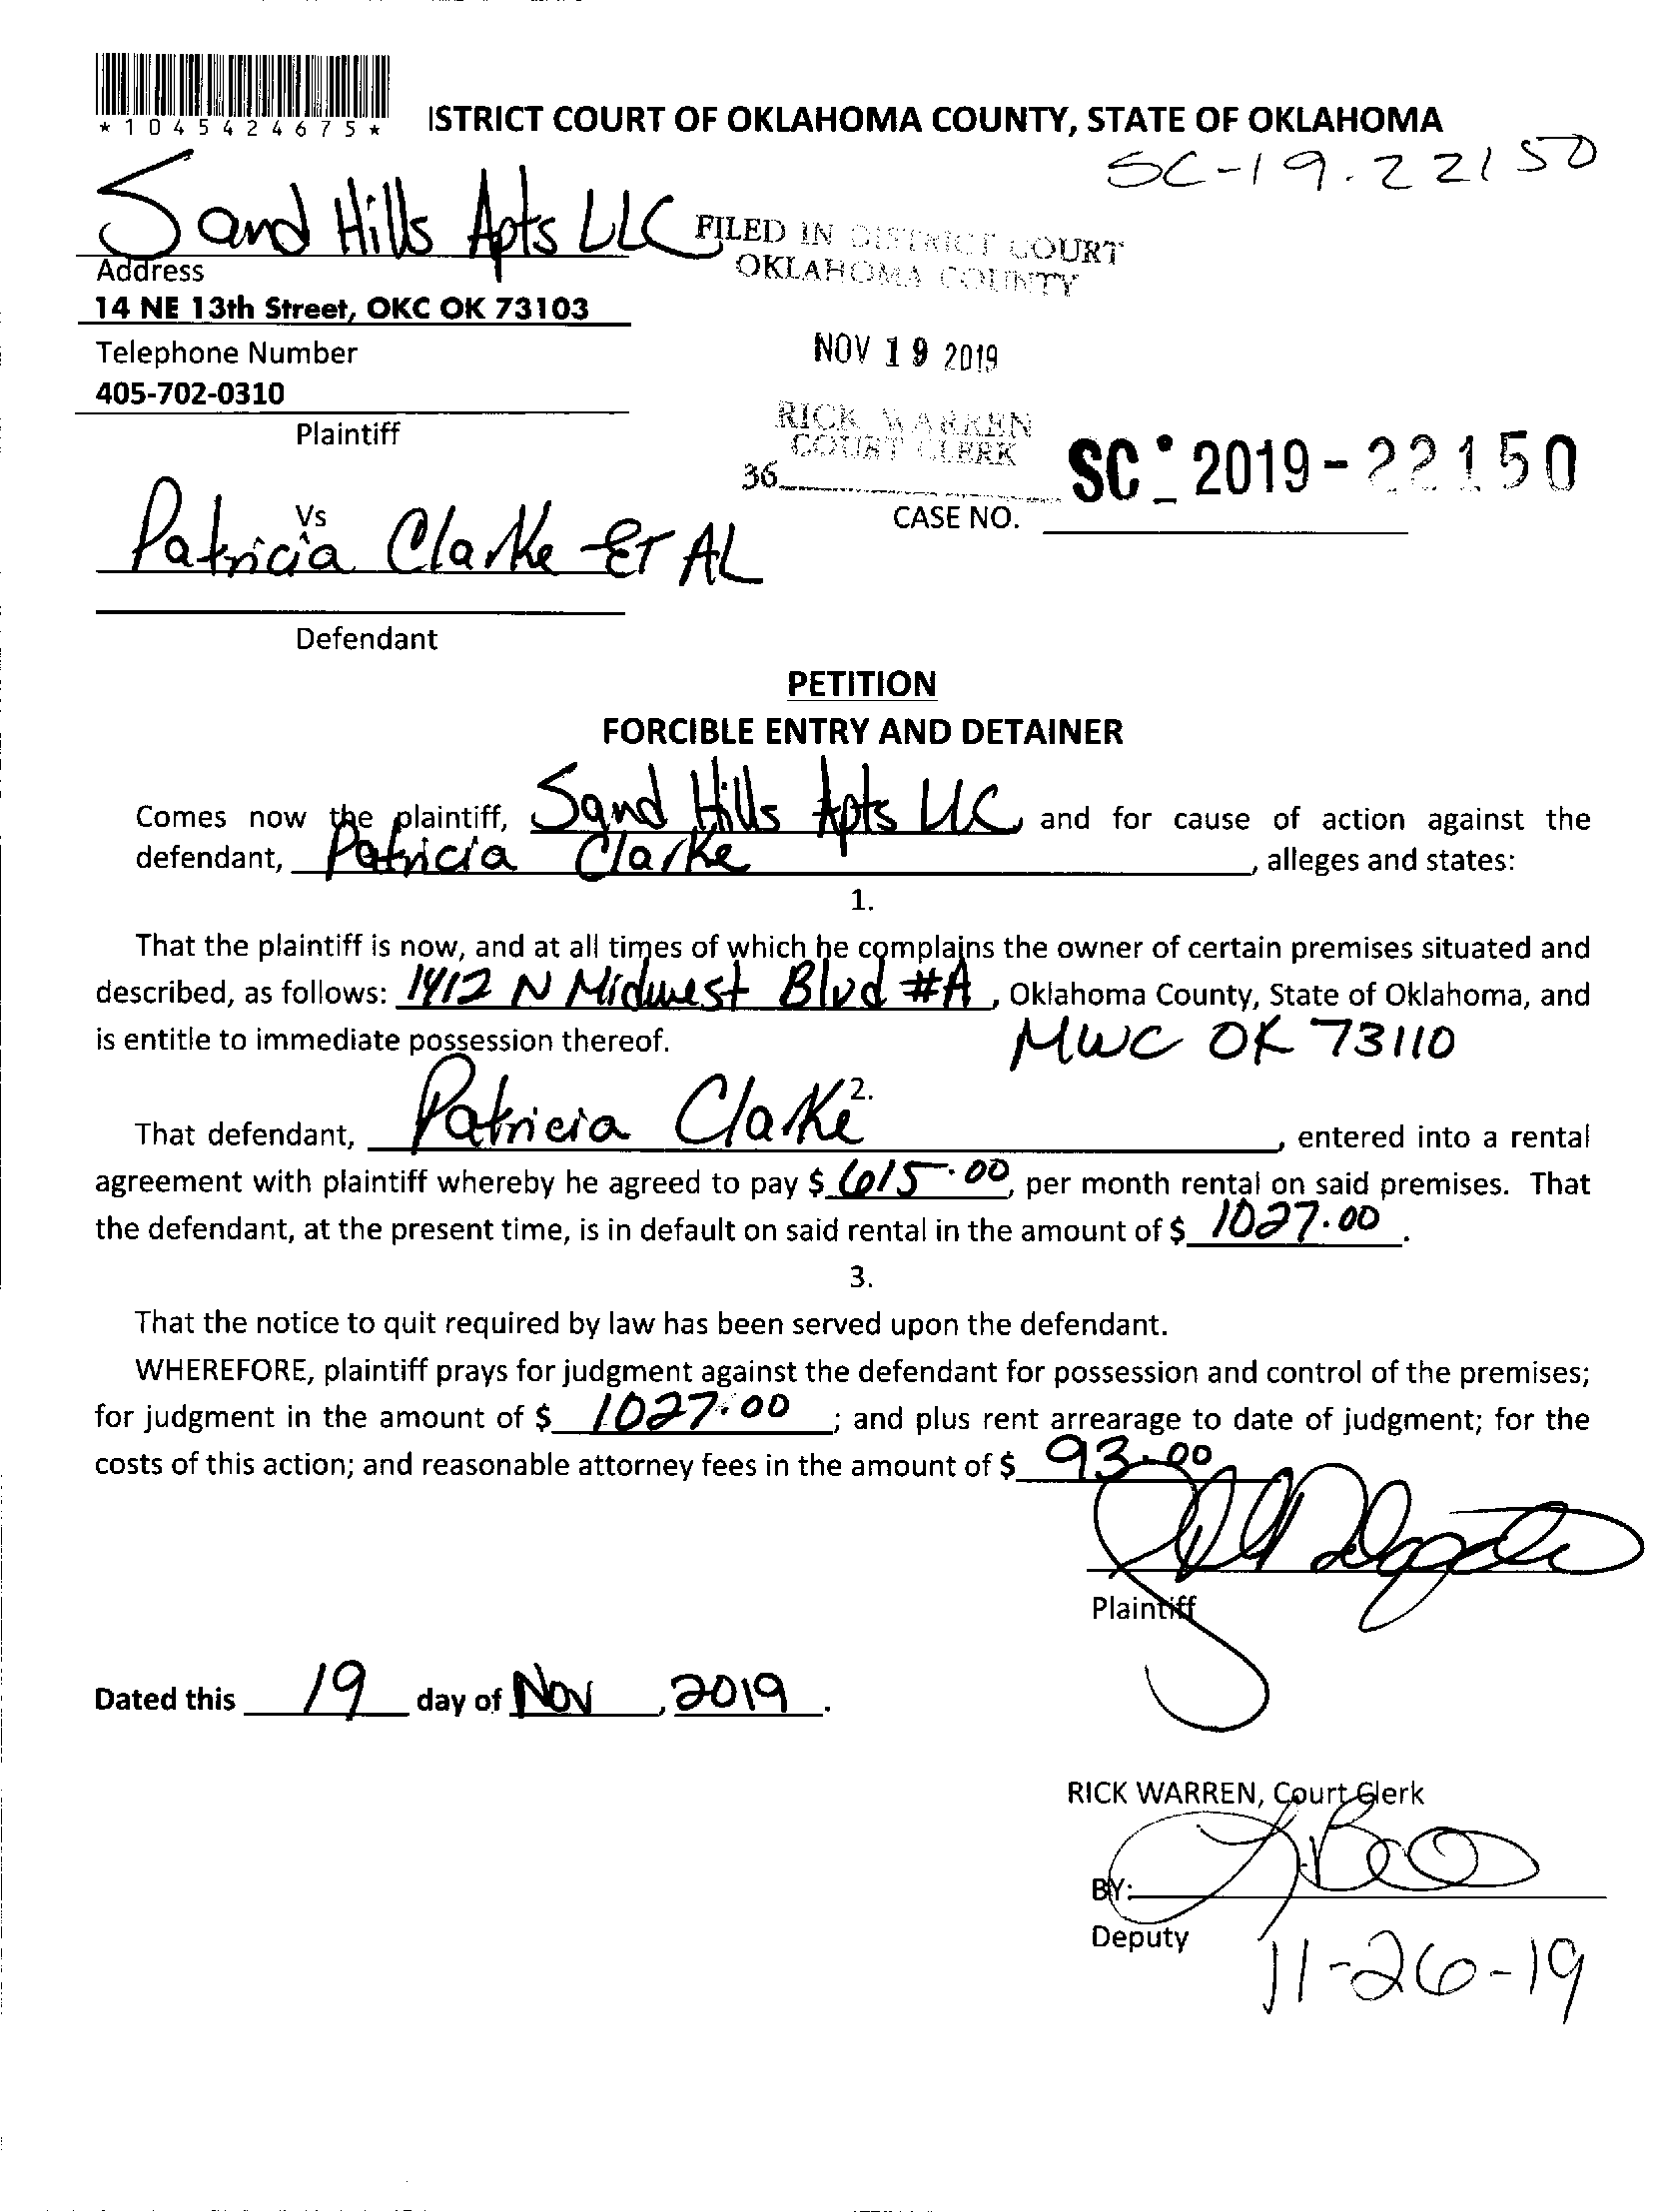 *1045424675*
ISTRICT COURT OF OKLAHOMA COUNTY, STATE OF OKLAHOMA
SC-19-22150
Sand Hills Apts LLC
FILED IN DISTRICT COURT
OKLAHOMA COUNTY
Address
14 NE 13th Street, OKC OK 73103
Telephone Number
NOV 19 2019
405-702-0310
Plaintiff
RICK WARREN
COURT CLERK
36
SC - 2019 - 22150
CASE NO.
Vs
Patricia Clarke ET AL
Defendant
PETITION
FORCIBLE ENTRY AND DETAINER
Comes now the plaintiff, Sand Hills Apts LLC, and for cause of action against the
defendant, Patricia Clarke, alleges and states:
1.
That the plaintiff is now, and at all times of which he complains the owner of certain premises situated and
described, as follows: 1412 N Midwest Blvd #A, Oklahoma County, State of Oklahoma, and
is entitle to immediate possession thereof. MWC OK 73110
2.
That defendant, Patricia Clarke, entered into a rental
agreement with plaintiff whereby he agreed to pay $ 615.00, per month rental on said premises. That
the defendant, at the present time, is in default on said rental in the amount of $ 1027.00.
3.
That the notice to quit required by law has been served upon the defendant.
WHEREFORE, plaintiff prays for judgment against the defendant for possession and control of the premises;
for judgment in the amount of $ 1027.00; and plus rent arrearage to date of judgment; for the
costs of this action; and reasonable attorney fees in the amount of $ 93.00
Plaintiff
Dated this 19 day of Nov, 2019.
RICK WARREN, Court Clerk
BY:
Deputy
11-26-19